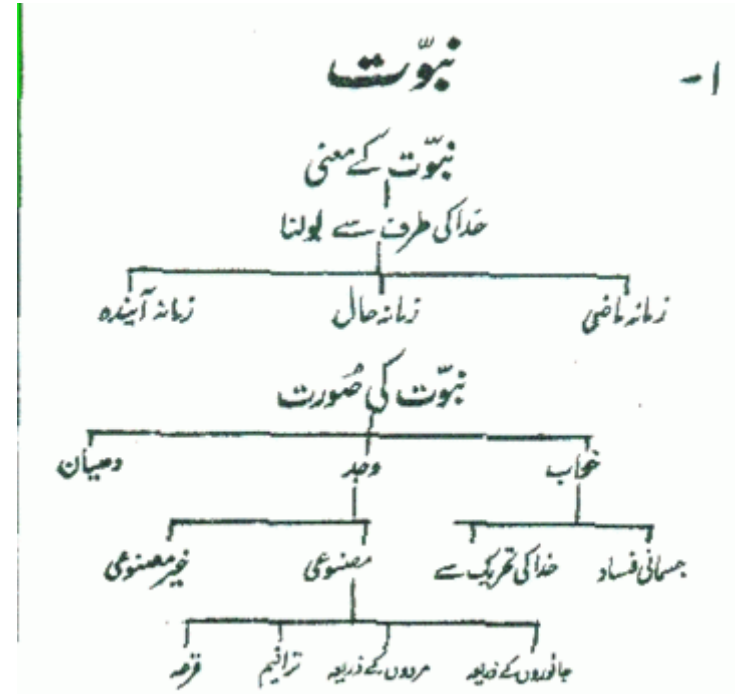 ۱- نبوّت
نبوّت کے معنی
خدا کی طرف سے بولنا
زمانہ ماضی زمانہ حال زمانہ آیندہ
نبوّت کی صُورت
خواب وجد دھیان
جسمانی فساد خدا کی تحریک سے مصنوعی غیر مصنوعی
جانوروں کے ذریعہ مردوں کے ذریعہ ترافیم قرعہ